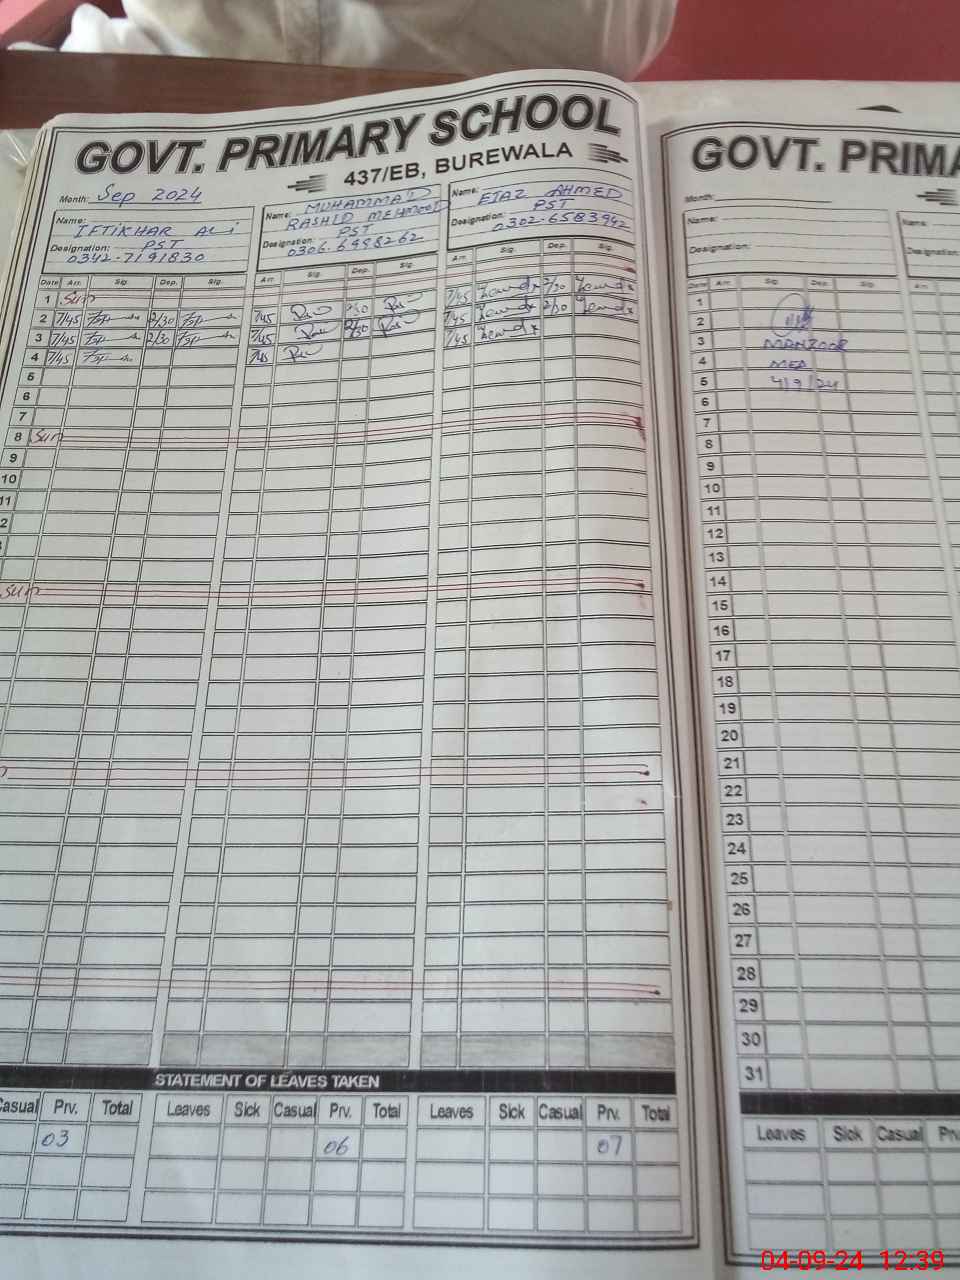 GOVT. PRIMARY SCHOOL
437/EB, BUREWALA
Month: Sep 2024
Name: IFTIKHAR ALi
Designation: PST
0342-7191830
Name: MUHAMMAD
RASHID MEHMOOD
Designation: PST
0306-6998262
Name: EJAZ AHMED
Designation: PST
0302-6583942
Date Arr. Sig. Dep. Sig. Arr. Sig. Dep. Sig. Arr. Sig. Dep. Sig.
1 Sun
2 7/45 2/30 7/45 2/30 7/45 2/30
3 7/45 2/30 7/45 2/30 7/45 2/30
4 7/45 7/45 7/45
5
6
7
8 Sun
9
10
11
2
Sun
STATEMENT OF LEAVES TAKEN
Casual Prv. Total Leaves Sick Casual Prv. Total Leaves Sick Casual Prv. Total
03 06 07
GOVT. PRIMA
Month:
Name: Name:
Designation: Designation:
Date Arr. Sig. Dep. Sig. Arr.
1
2
3 MANZOOR
4 MEA
5 4/9/24
6
7
8
9
10
11
12
13
14
15
16
17
18
19
20
21
22
23
24
25
26
27
28
29
30
31
Leaves Sick Casual Prv
04-09-24 12:39